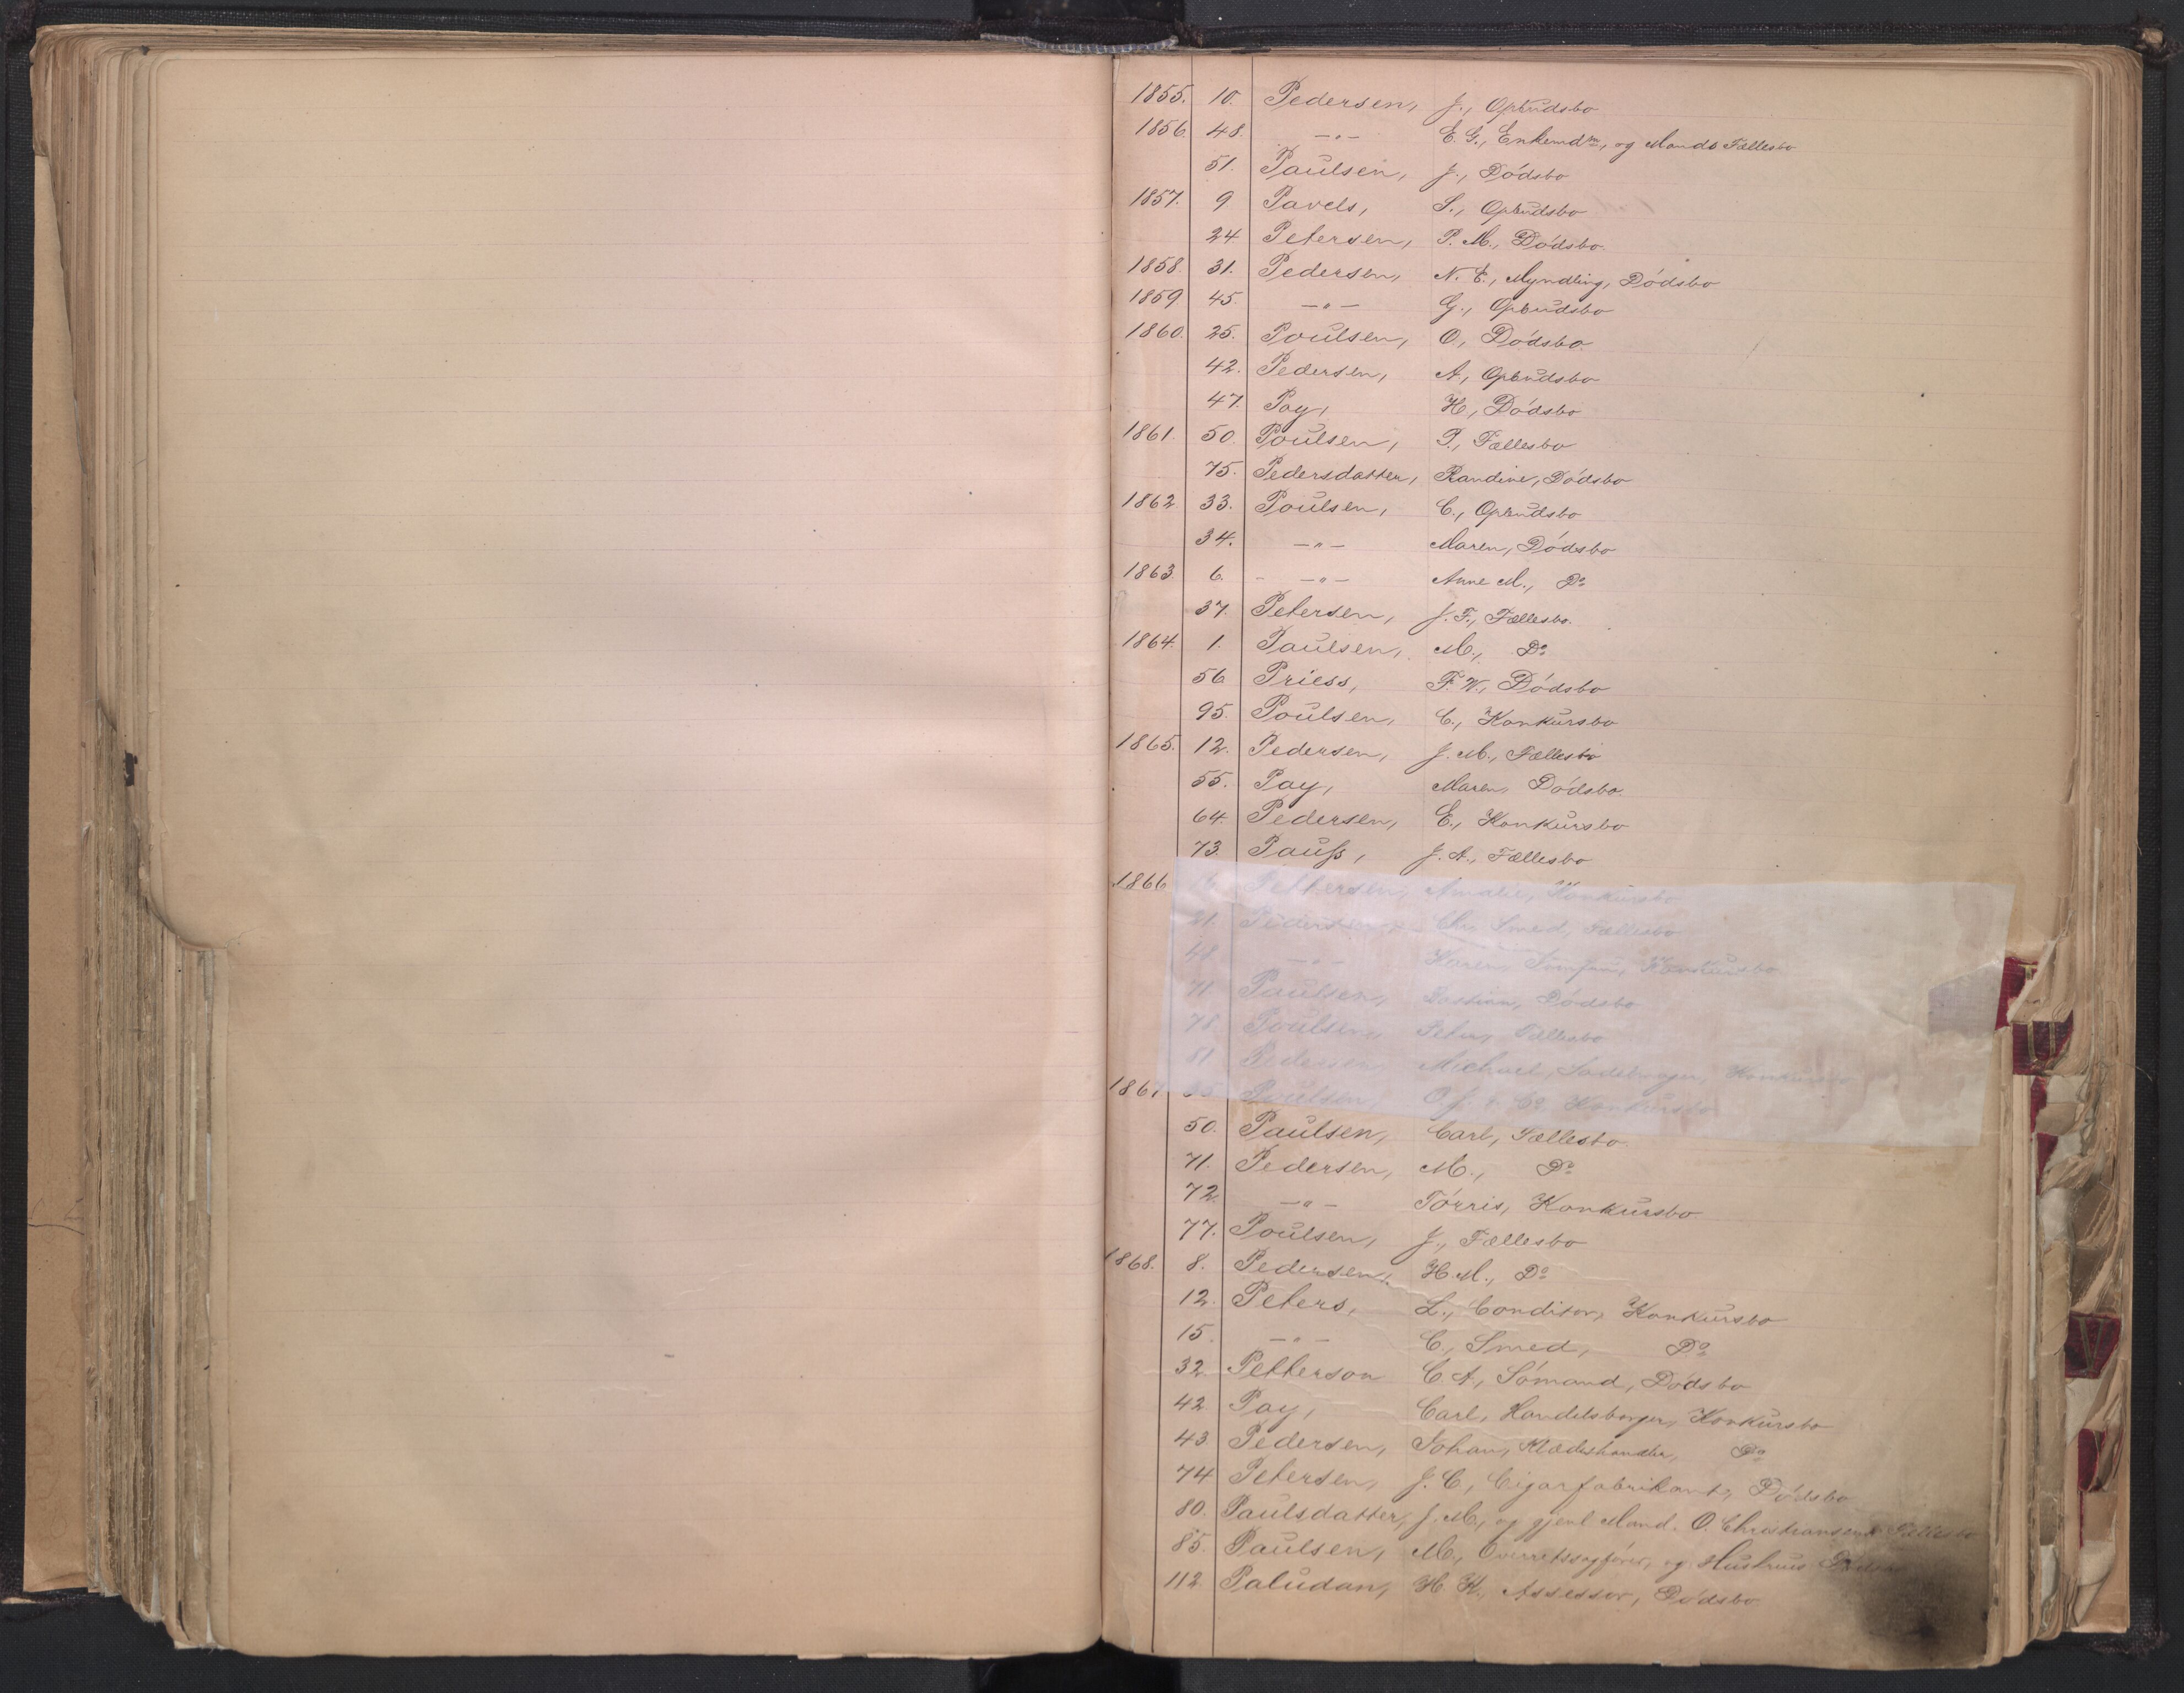 1855. 10. Pedersen, J., Opbudsbo
1856. 48. —"— E. G., Enkemdm, og Mands Fællesbo
51. Paulsen, J., Dødsbo
1857. 9 Pavels, S., Opbudsbo
24 Petersen, P. M., Dødsbo.
1858. 31. Pedersen, N. E., Myndling, Dødsbo
1859 45. —"— G., Opbudsbo
1860. 25. Poulsen, O, Dødsbo.
42. Pedersen, A, Opbudsbo
47. Pay, H, Dødsbo
1861. 50. Poulsen, P., Fællesbo
75. Pedersdatter, Randine, Dødsbo
1862. 33. Poulsen, C., Opbudsbo
34. —"— Maren, Dødsbo
1863. 6. —"— Anne M., Do
37. Petersen, J. F., Fællesbo.
1864. 1. Paulsen, M., Do
56 Priess, F. W., Dødsbo
95. Poulsen, C., Konkursbo
1865. 12. Pedersen, J. M., Fællesbo
55. Pay, Maren, Dødsbo.
64. Pedersen, E., Konkursbo
73. Pauss, J. A., Fællesbo
1866 Pettersen, Amalie, Konkursbo
21. Pedersen, Chr. Smed, Fællesbo
48. —"— Karen, Jomfru, Konkursbo
71. Paulsen, Bastian, Dødsbo
78. Poulsen, Peter, Fællesbo
81 Pedersen, Michael, Konkursbo
1867 Poulsen, O. J. & Co, Konkursbo
50. Paulsen, Carl, Fællesbo.
71. Pedersen, M., Do
72. —"— Tørris, Konkursbo
77. Poulsen, J., Fællesbo
1868. 8. Pedersen, H. M., Do
12. Peters, L., Conditor, Konkursbo
15. —"— C., Smed, Do
32. Petterson C. A., Sømand, Dødsbo
42. Pay, Carl, Handelsborger, Konkursbo
43. Pedersen, Johan, Klædeshandler, Do
74 Petersen, J. C., Cigarfabrikant, Dødsbo
80. Paulsdatter, J. M., og gjenl. Mand. O. Christiansens Fællesbo
85. Paulsen, M., Overretssagfører, og Hustrues
112. Paludan, H. K., Assessor, Dødsbo.